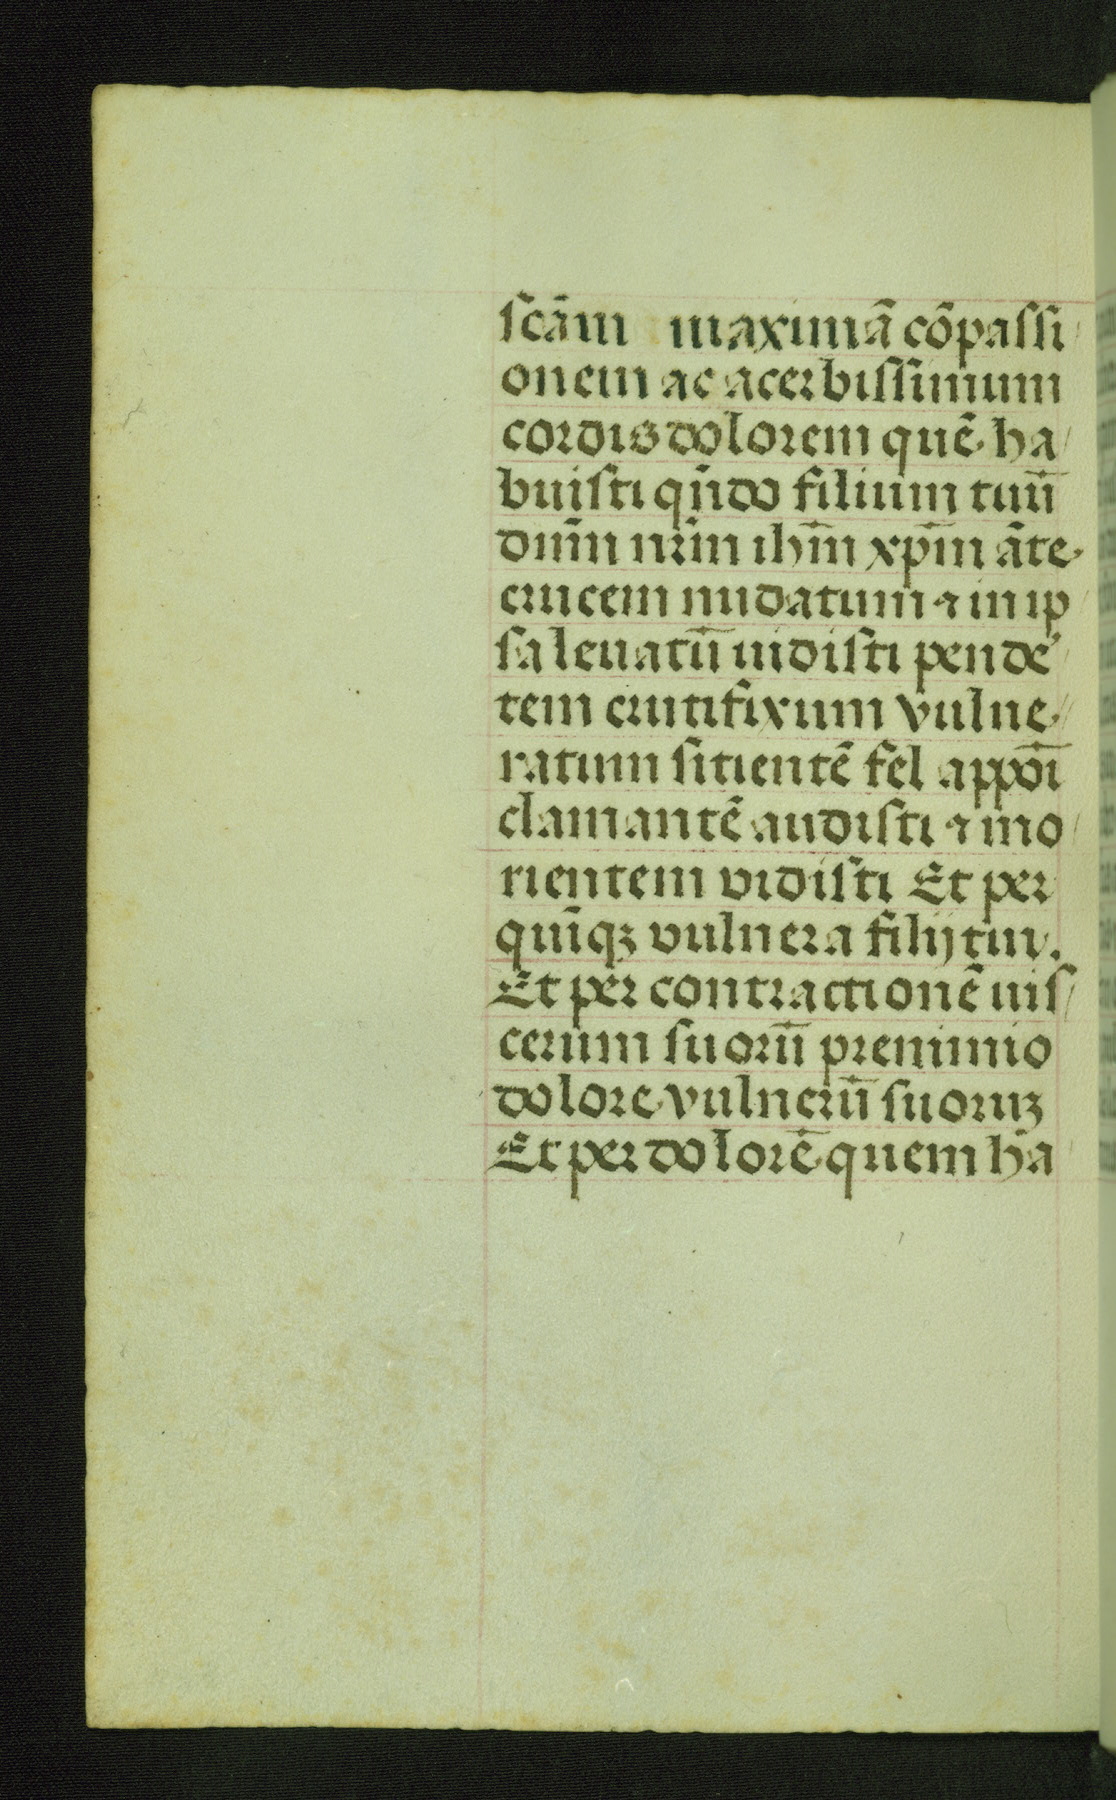 scãm maximã cõpassi
onem ac acerbissimum
cordis dolorem quẽ ha
buisti qñdo filium tuũ
dñm nr̃m ihm̃ xpm̃ ãte
crucem nudatum ⁊ in ip
sa leuatũ uidisti pendẽ
tem crucifixum vulne
ratum sitientẽ fel appõi
clamantẽ audisti ⁊ mo
rientem vidisti Et per
quĩqꝫ vulnera filij tui.
Et per contractionẽ uis
cerum suorũ prenimio
dolore vulnerũ suoruꝫ
Et per dolorẽ quem ha